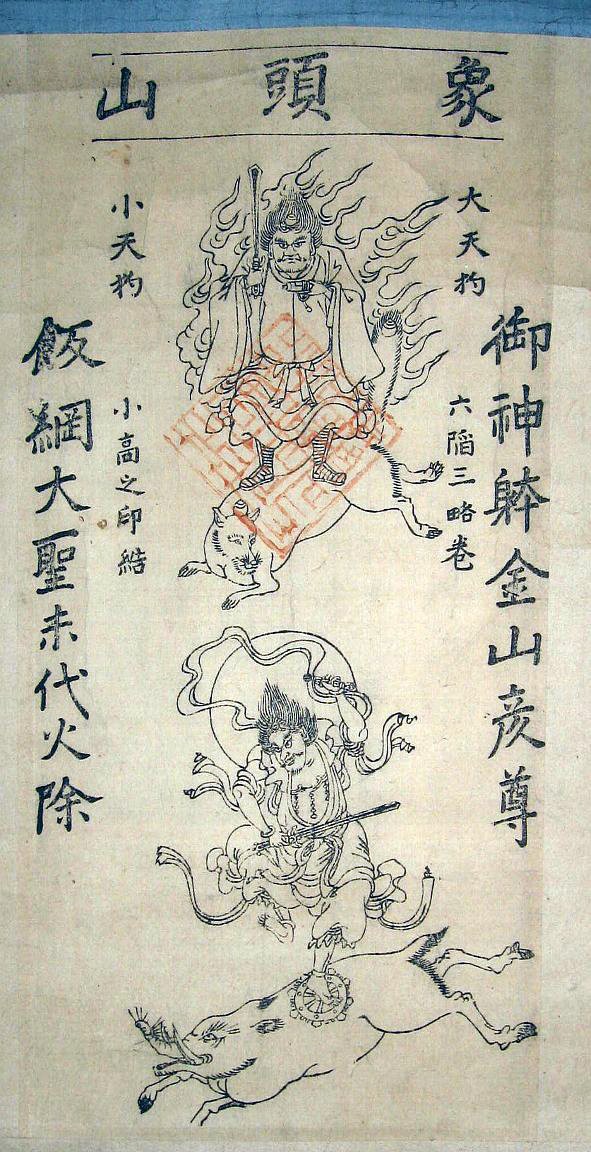 象頭山
大天狗
六韜三略卷
御神躰金山彦尊
小天狗
小高之印結
飯綱大聖末代火除